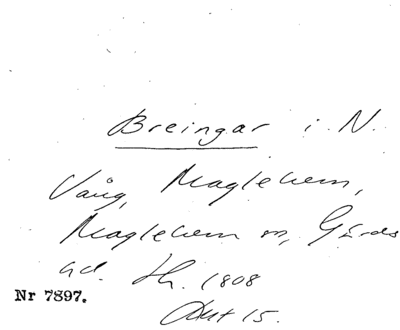 Breingar i. N.
Vång, Maglehem,
Maglehem sn, Gärds
hd. Sk. 1808
Nr 7897.
Akt 15.